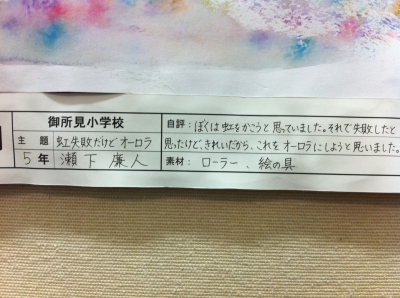 御所見小学校
主題 虹失敗だけどオーロラ
5年 瀬下 廉人
自評：ぼくは虹をかこうと思っていました。それで失敗したと
思ったけど、きれいだから、これをオーロラにしようと思いました。
素材：ローラー、絵の具